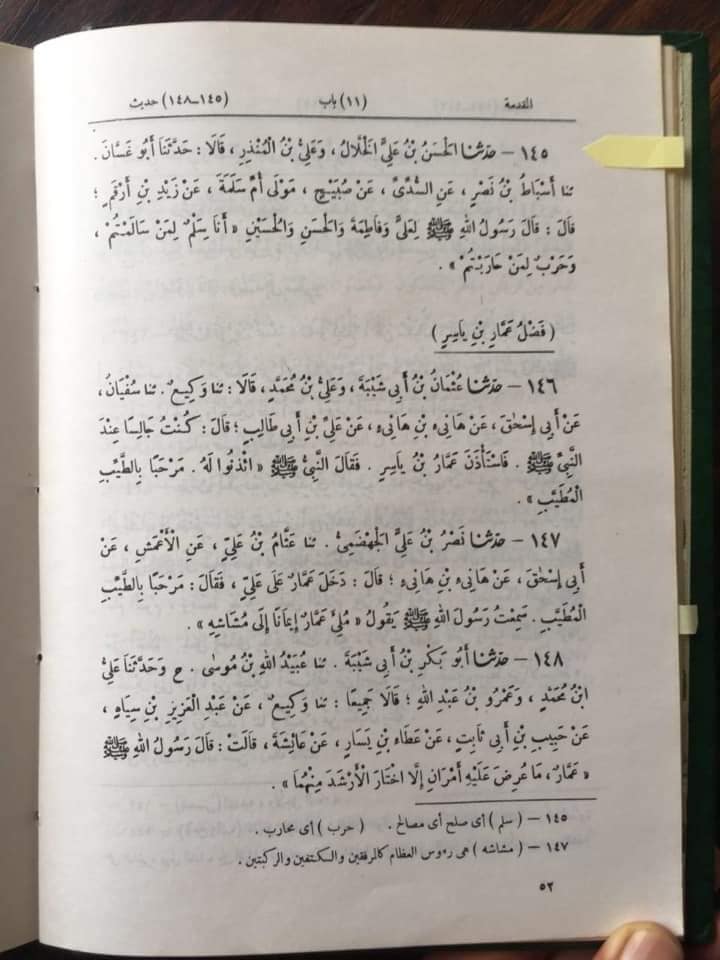 المقدمة (١١) باب (١٤٥-١٤٨) حديث
١٤٥ – حَدَّثَنَا الْحَسَنُ بْنُ عَلِيٍّ الْخَلَّالُ ، وَعَلِيُّ بْنُ الْمُنْذِرِ ، قَالَا : حَدَّثَنَا أَبُو غَسَّانَ .
ثنا أَسْبَاطُ بْنُ نَصْرٍ ، عَنِ السُّدِّيِّ ، عَنْ صُبَيْحٍ ، مَوْلَى أُمِّ سَلَمَةَ ، عَنْ زَيْدِ بْنِ أَرْقَمَ ؛
قَالَ : قَالَ رَسُولُ اللهِ ﷺ لِعَلِيٍّ وَفَاطِمَةَ وَالْحَسَنِ وَالْحُسَيْنِ « أَنَا سِلْمٌ لِمَنْ سَالَمْتُمْ ،
وَحَرْبٌ لِمَنْ حَارَبْتُمْ » .
( فَضْلُ عَمَّارِ بْنِ يَاسِرٍ )
١٤٦ – حَدَّثَنَا عُثْمَانُ بْنُ أَبِي شَيْبَةَ ، وَعَلِيُّ بْنُ مُحَمَّدٍ ، قَالَا : ثنا وَكِيعٌ . ثنا سُفْيَانُ ،
عَنْ أَبِي إِسْحَقَ ، عَنْ هَانِيءِ بْنِ هَانِيءِ ، عَنْ عَلِيِّ بْنِ أَبِي طَالِبٍ ؛ قَالَ : كُنْتُ جَالِسًا عِنْدَ
النَّبِيِّ ﷺ . فَاسْتَأْذَنَ عَمَّارُ بْنُ يَاسِرٍ . فَقَالَ النَّبِيُّ ﷺ « ائْذَنُوا لَهُ . مَرْحَبًا بِالطَّيِّبِ
الْمُطَيَّبِ » .
١٤٧ – حَدَّثَنَا نَصْرُ بْنُ عَلِيٍّ الْجَهْضَمِيُّ . ثنا عَثَّامُ بْنُ عَلِيٍّ ، عَنِ الْأَعْمَشِ ، عَنْ
أَبِي إِسْحَقَ ، عَنْ هَانِيءِ بْنِ هَانِيءِ ؛ قَالَ : دَخَلَ عَمَّارٌ عَلَى عَلِيٍّ ، فَقَالَ : مَرْحَبًا بِالطَّيِّبِ
الْمُطَيَّبِ . سَمِعْتُ رَسُولَ اللهِ ﷺ يَقُولُ « مُلِيءَ عَمَّارٌ إِيمَانًا إِلَى مُشَاشِهِ » .
١٤٨ – حَدَّثَنَا أَبُو بَكْرِ بْنُ أَبِي شَيْبَةَ . ثنا عُبَيْدُ اللهِ بْنُ مُوسَى . ح وَحَدَّثَنَا عَلِيُّ
ابْنُ مُحَمَّدٍ ، وَعَمْرُو بْنُ عَبْدِ اللهِ ؛ قَالَا جَمِيعًا : ثنا وَكِيعٌ ، عَنْ عَبْدِ الْعَزِيزِ بْنِ سِيَاهٍ ،
عَنْ حَبِيبِ بْنِ أَبِي ثَابِتٍ ، عَنْ عَطَاءِ بْنِ يَسَارٍ ، عَنْ عَائِشَةَ ، قَالَتْ : قَالَ رَسُولُ اللهِ ﷺ
« عَمَّارٌ ، مَا عُرِضَ عَلَيْهِ أَمْرَانِ إِلَّا اخْتَارَ الْأَرْشَدَ مِنْهُمَا » .
١٤٥ – ( سلم ) أى صلح أى مصالح . ( حرب ) أى محارب .
١٤٧ – ( مشاشه ) هى رءوس العظام كالمرفقين والكتفين والركبتين .
٥٢